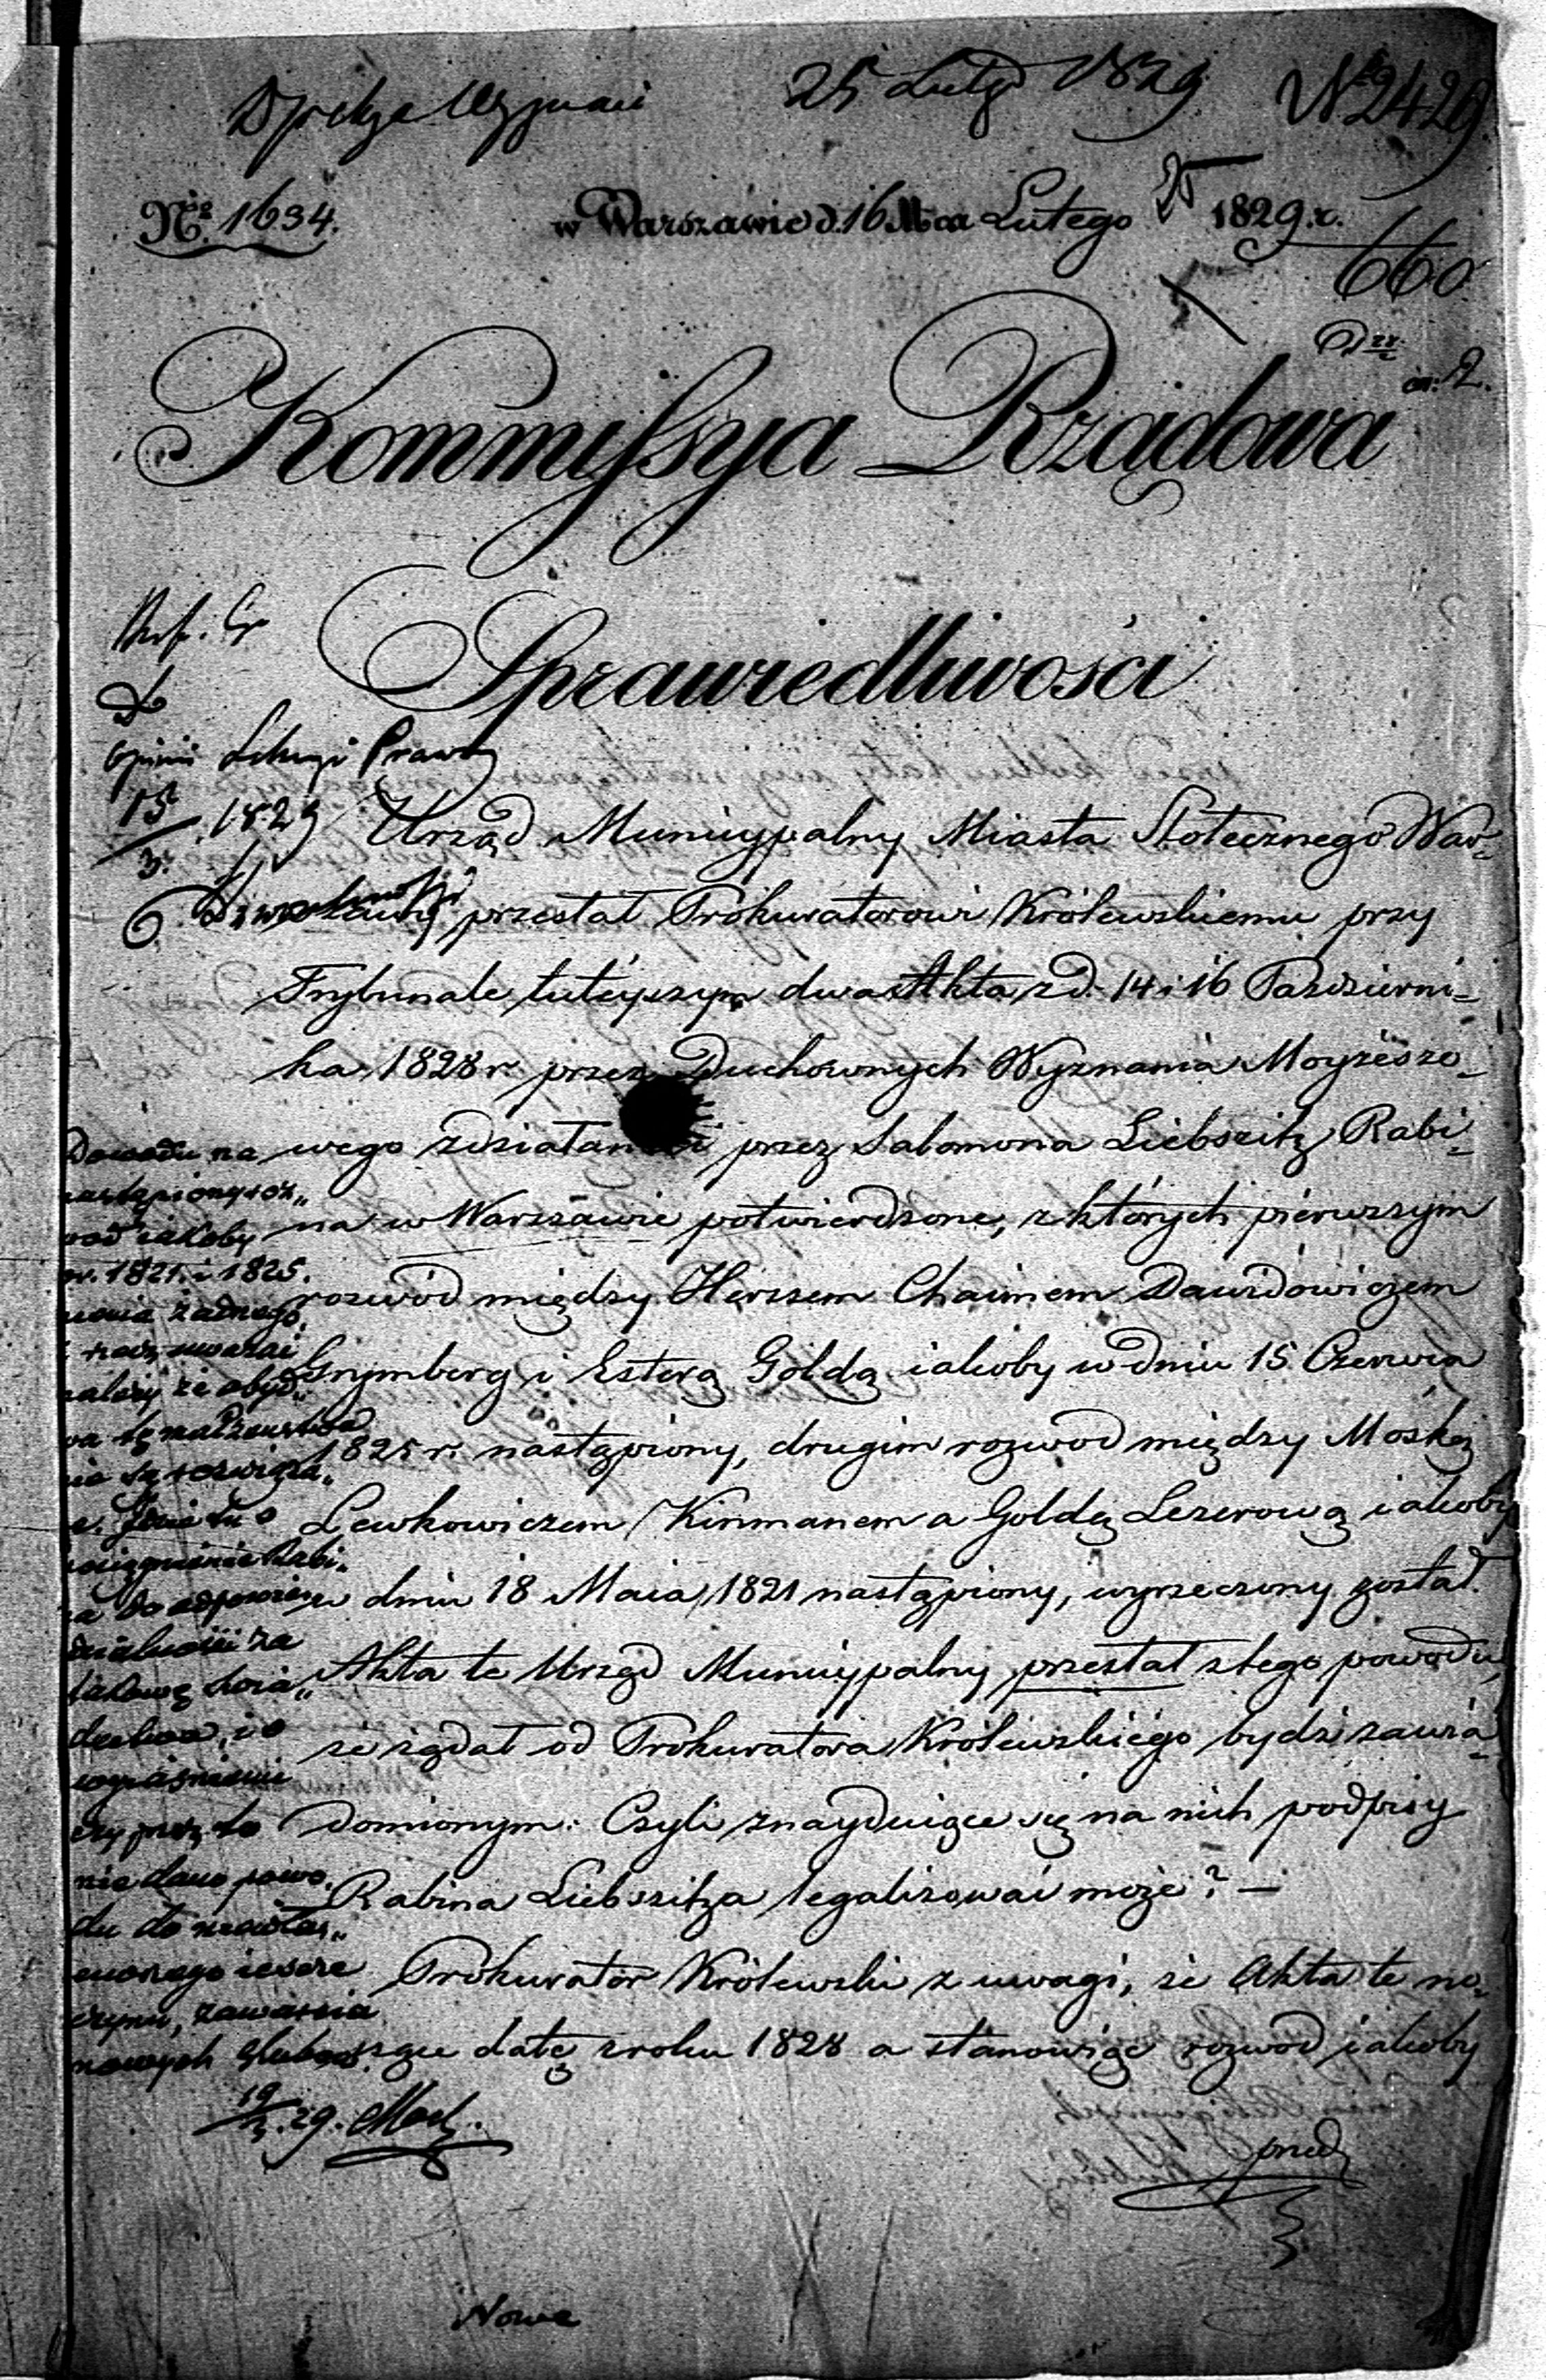 25 Lutego 1829 № 2429
№ 1634. w Warszawie d. 16 Mca Lutego 1829. r.
25
660
Kommissya Rządowa
Sprawiedliwości
do
opinii Sekcyi Prawney
15/3. 1829
Urząd Municypalny Miasta Stołecznego War-
szawy przesłał Prokuratorowi Królewskiemu przy
Trybunale tuteyszym dwa Akta z d. 14 i 16 Październi-
ka 1828 r. przez Duchownych Wyznania Moyżeszo-
wego zdziałane i przez Salomona Liebszitz Rabi-
na w Warszawie potwierdzone, z których pierwszym
rozwód między Herszem Chaimem Dawidowiczem
Grynberg i Esterą Goldą iakoby w dniu 15 Czerwca
1825 r. nastąpiony, drugim rozwod między Moską
Lewkowiczem Kinmanem a Goldą Lezerową iakoby
w dniu 18 Maia 1821 nastąpiony, wyrzeczony został.
Akta te Urząd Municypalny przesłał z tego powodu,
że żądał od Prokuratora Królewskiego bydź zawia-
domionym: Czyli znayduiące się na nich podpisy
Rabina Liebszitza legalizować może? —
Prokurator Królewski z uwagi, że Akta te no-
szące datę z roku 1828 a stanowiąc rozwod iakoby
przed
Dowodu na
nastąpiony roz„
wod iakoby
w r. 1821. i 1825.
niema żadnego,
i raczey uważać
należy że obyd„
wa te małżeństwa
nie są rozwiąza„
ne. Idzie tu o
pociągnienie Rabi„
na do odpowie„
dzialności za
takowe świa„
dectwa, i o
wyiaśnienie
czy przez to
nie dano powo„
du do
iescze
czynu, zawarcia
nowych ślubow.
19/3. 29.
Nowe